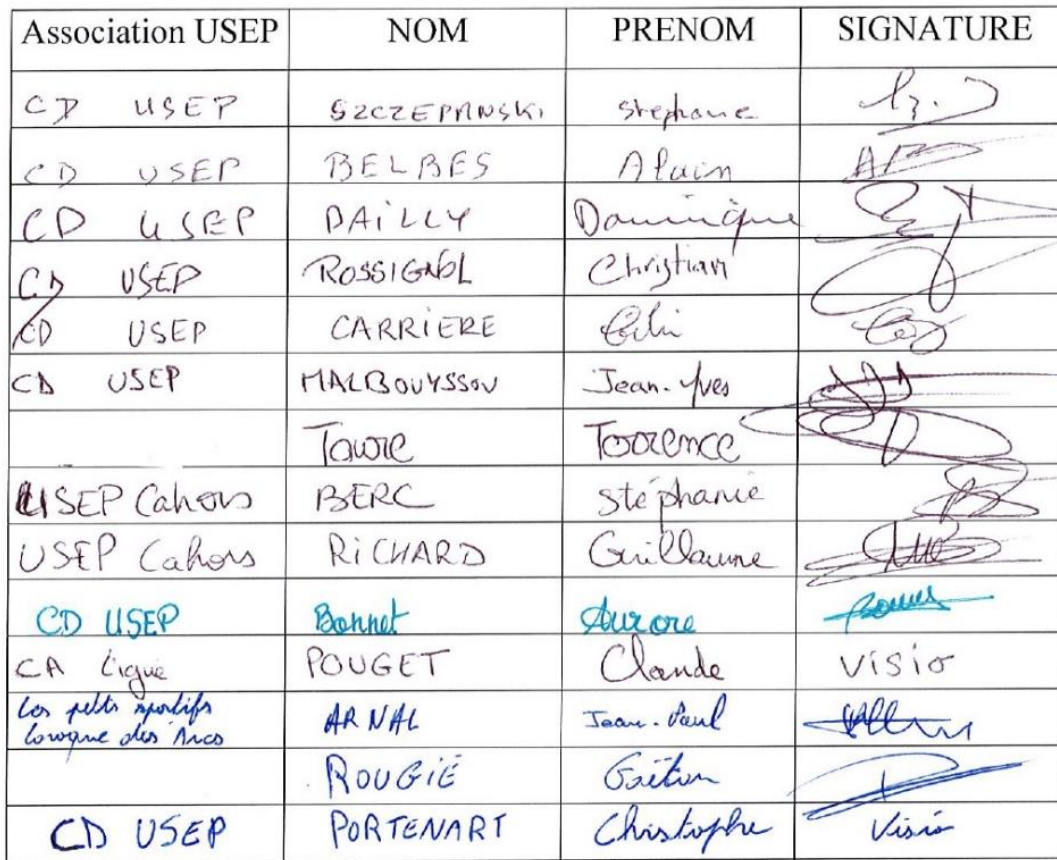 Association USEP NOM PRENOM SIGNATURE
CD USEP SZCZEPANSKI Stéphanie
CD USEP BELBES Alain
CD USEP DAILLY Dominique
CD USEP ROSSIGNOL Christian
CD USEP CARRIERE
CD USEP MALBOUYSSOU Jean-Yves
Torrence
USEP Cahors BERC Stéphanie
USEP Cahors RICHARD Guillaume
CD USEP Bonnet Aurore
CA Ligue POUGET Claude Visio
Les petits sportifs
des Arcs ARNAL Jean-Paul
ROUGIÉ Gaëtan
CD USEP PORTENART Christophe Visio